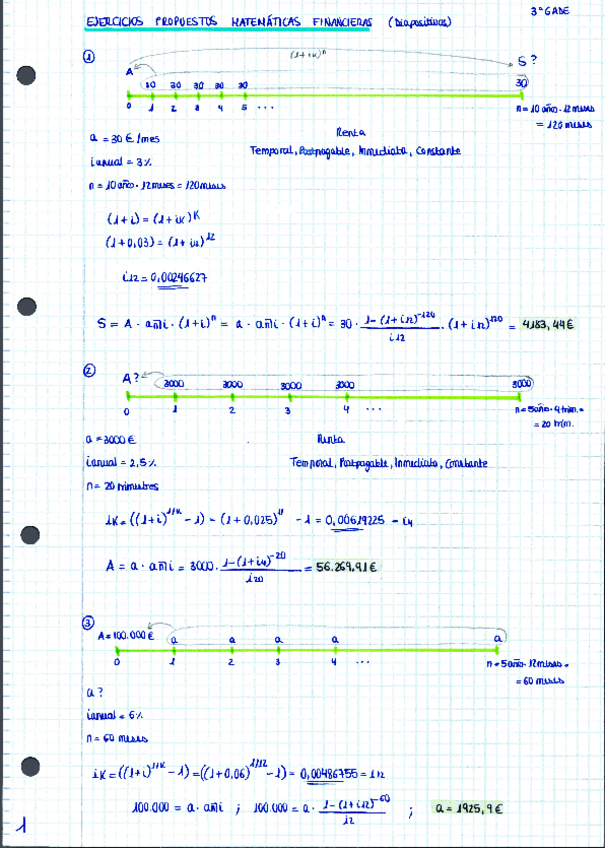 3º GADE
EJERCICIOS PROPUESTOS MATEMÁTICAS FINANCIERAS (Diapositivas)
1
(1+ik)ⁿ
A
S?
30 30 30 30 30 30
0 1 2 3 4 5 ...
n = 10 año · 12 meses
= 120 meses
a = 30 € / mes
Renta
Temporal, Postpagable, Inmediata, Constante
i anual = 3%
n = 10 año · 12 meses = 120 meses
(1+i) = (1+ik)^K
(1+0,03) = (1+i12)^12
i12 = 0,00246627
S = A · an̄i · (1+i)ⁿ = a · an̄i · (1+i)ⁿ = 30 · 1-(1+i12)^-120 / i12 · (1+i12)^120 = 4183,44€
2
A? 3000 3000 3000 3000 3000
0 1 2 3 4 ...
n = 5 año · 4 trim. =
= 20 trim.
a = 3000 €
Renta
i anual = 2,5%
Temporal, Postpagable, Inmediata, Constante
n = 20 trimestres
ik = ((1+i)^1/K - 1) = (1+0,025)^ - 1 = 0,00619225 = i4
A = a · an̄i = 3000 · 1-(1+i4)^-20 / i20 = 56.269,91€
3
A = 100.000 € a a a a a
0 1 2 3 4 ...
n = 5 año · 12 meses =
= 60 meses
a?
i anual = 6%
n = 60 meses
ik = ((1+i)^1/K - 1) = ((1+0,06)^1/12 - 1) = 0,00486755 = i12
100.000 = a · an̄i ; 100.000 = a · 1-(1+i12)^-60 / i2 ; a = 1925,9€
1